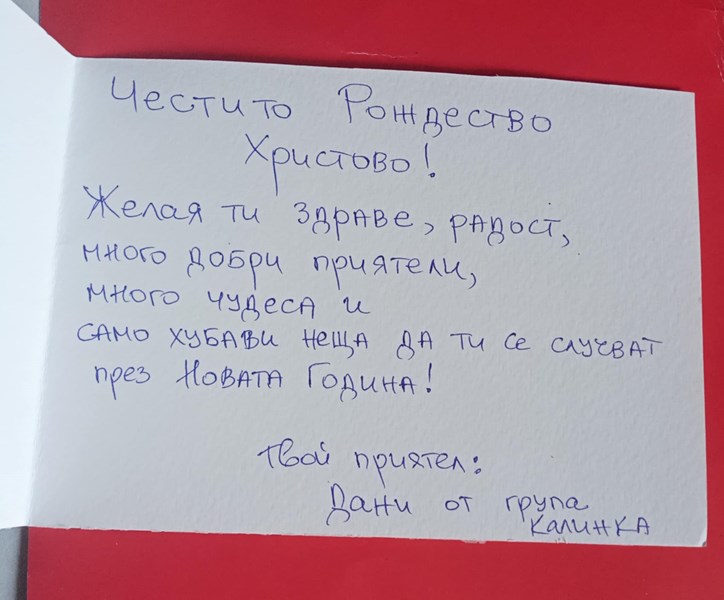 Честито Рождество
Христово!
Желая ти здраве, радост,
много добри приятели,
много чудеса и
само хубави неща да ти се случват
през Новата Година!
Твой приятел:
Дани от група
Калинка